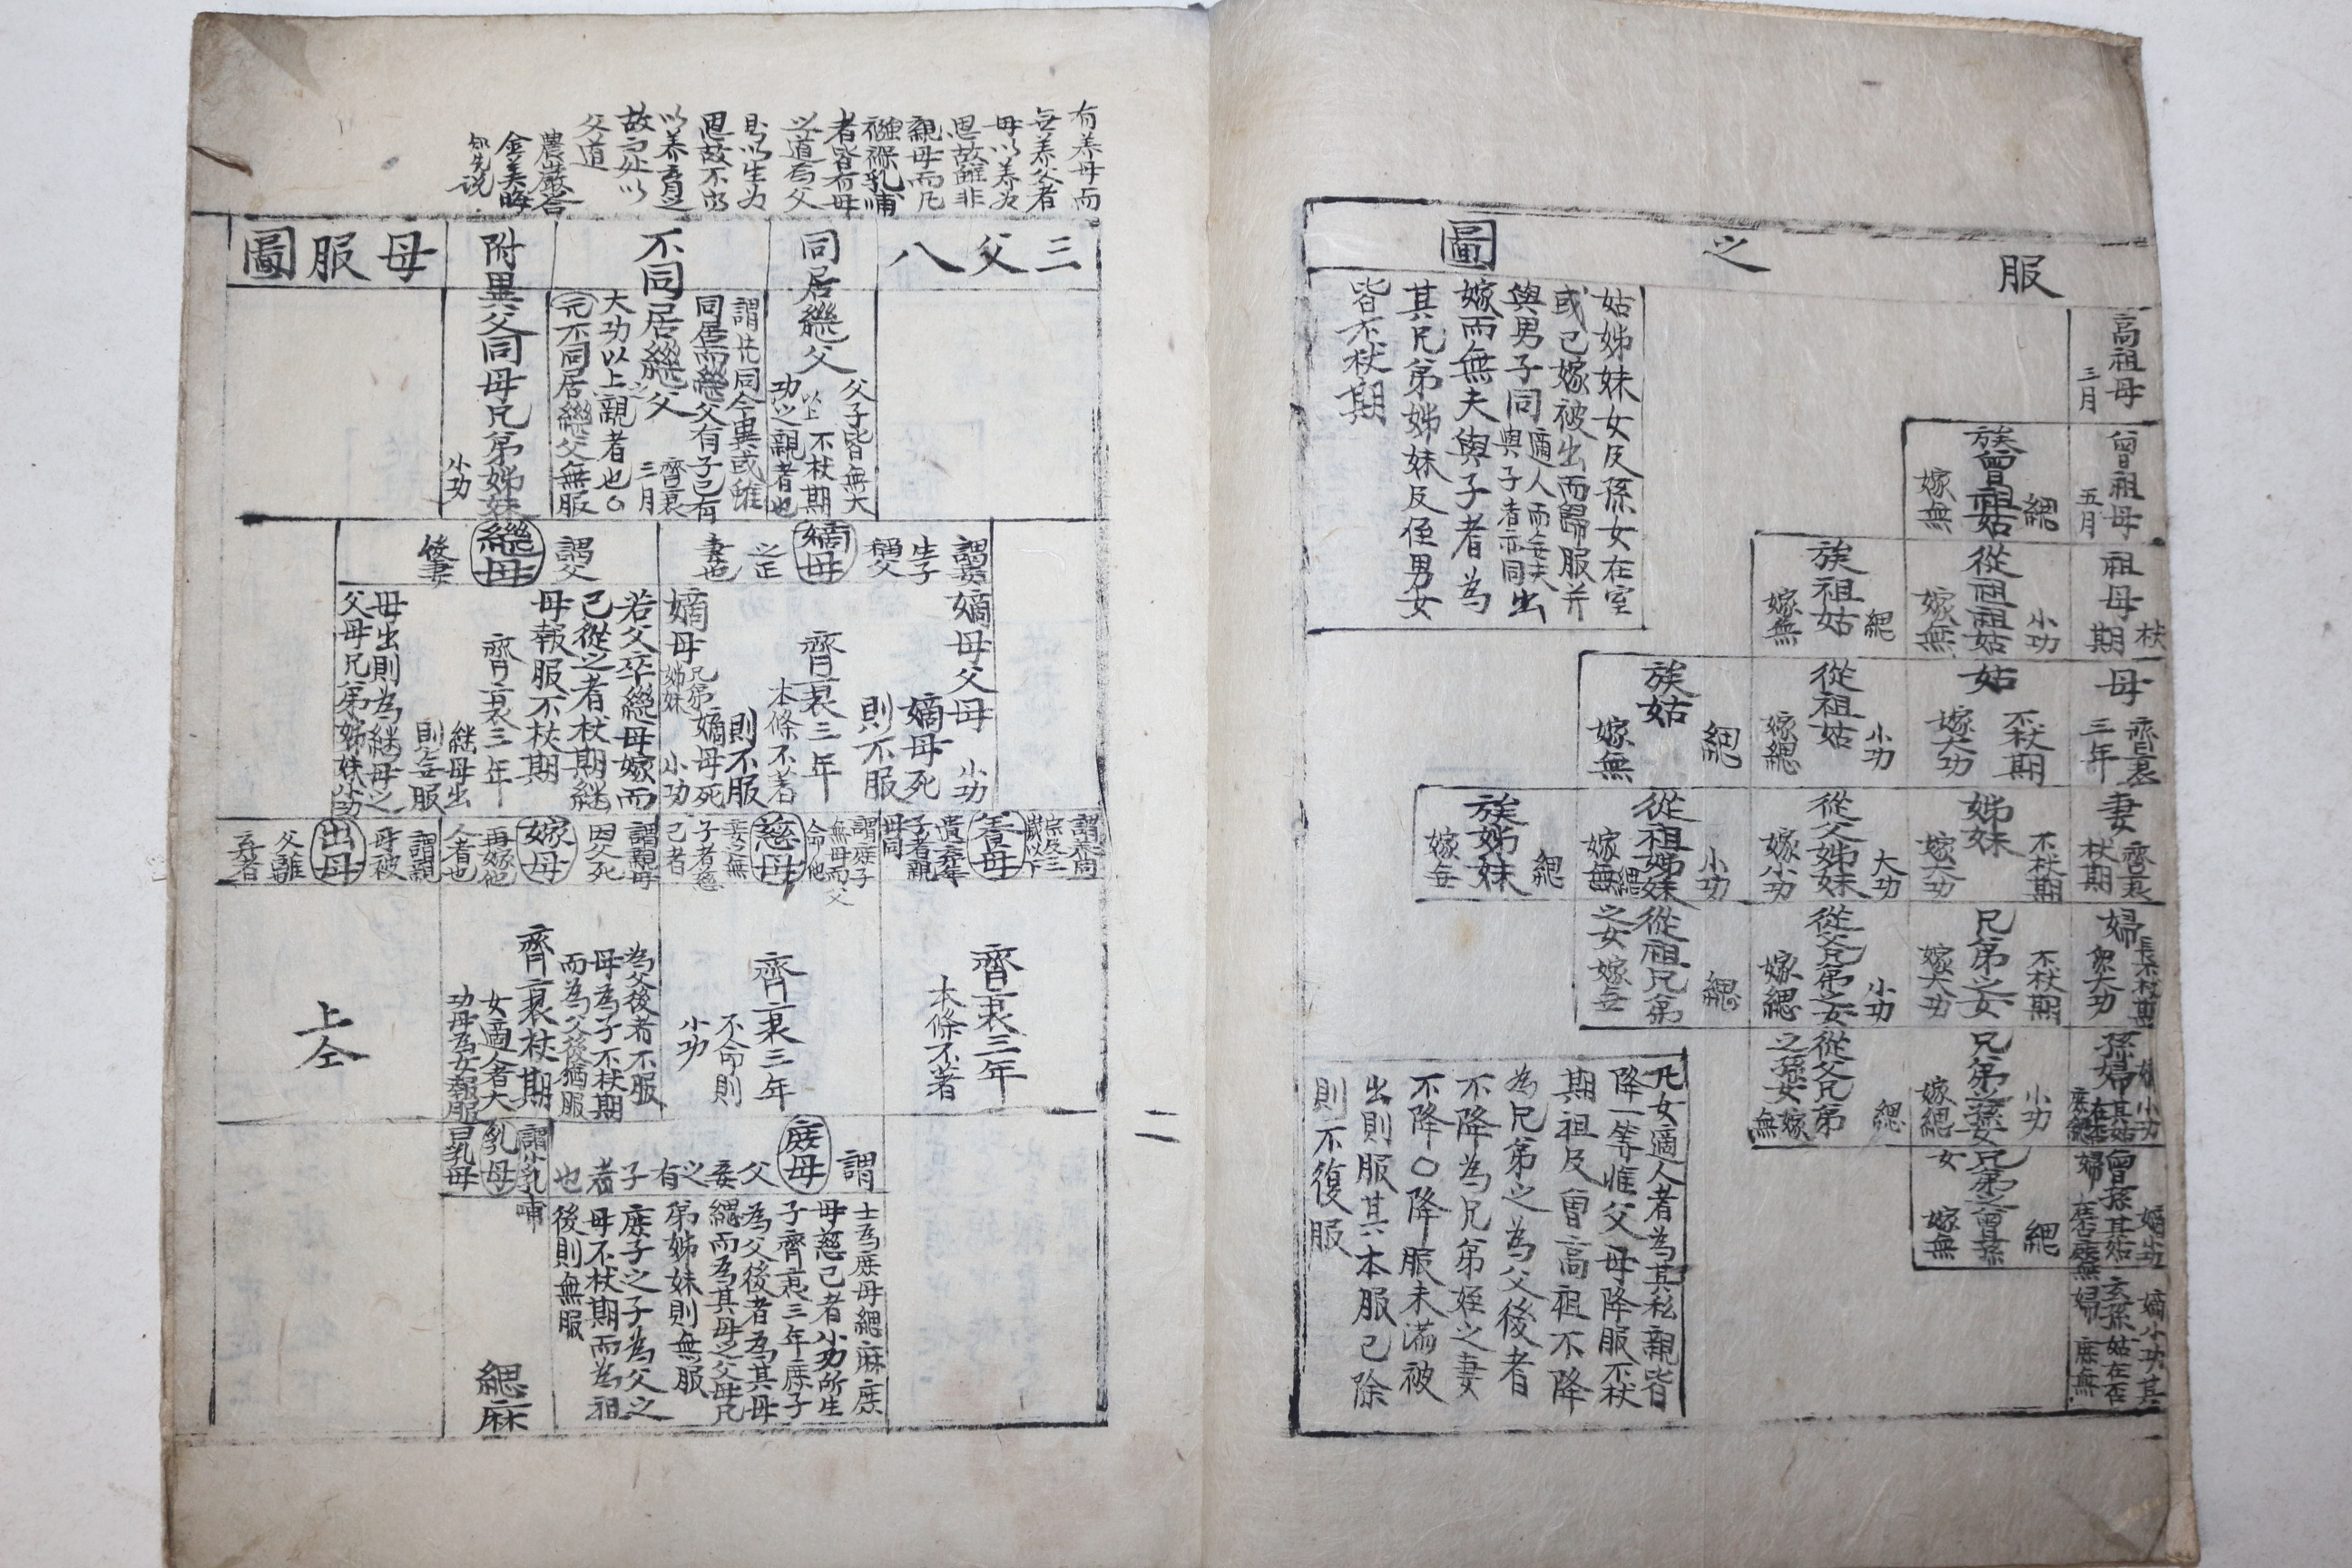 服之圖
高祖母
三月
曾祖母
五月
祖母
杖
期
母
齊衰
三年
妻
齊衰
杖期
婦
長不杖期
衆大功
孫婦
曾孫
婦
玄孫
婦
庶無
族曾祖姑
緦
嫁無
從祖祖姑
小功
嫁無
姑
不杖期
嫁大功
姊妹
不杖期
嫁大功
兄弟之女
不杖期
嫁大功
兄弟之孫女
小功
嫁緦
兄弟之曾孫
女
緦
嫁無
族祖姑
緦
嫁無
從祖姑
小功
嫁緦
從父姊妹
大功
嫁小功
從父兄弟之女
小功
嫁緦
從父兄弟
之孫女
緦
嫁無
族姑
緦
嫁無
從祖姊妹
小功
嫁緦
從祖兄弟
之女
緦
嫁無
族姊妹
緦
嫁無
姑姊妹女及孫女在室
或已嫁被出而歸服并
與男子同適人而無夫
與子者亦同出
嫁而無夫與子者為
其兄弟姊妹及侄男女
皆不杖期
凡女適人者為其私親皆
降一等惟父母降服不杖
期祖及曾高祖不降
為兄弟之為父後者
不降為兄弟姪之妻
不降○降服未滿被
出則服其本服已除
則不復服
二
有養母而
無養父者
母以養為
恩故雖非
親母而凡
襁褓乳哺
者皆有母
之道為父
則以生為
恩故不卽
以養育之
故而處以
父道
農巖答
金美晦
三父八
母服圖
同居繼父
父子皆無大
功之親者也
以上
不杖期
不同居繼父
謂先同今異或雖
同居而繼父有子已有
大功以上親者也○
元不同居繼父無服
齊衰
三月
附異父同母兄弟姊妹
小功
嫡母
謂妾
生子
稱父
之正
妻也
嫡母父母
小功
嫡母死
則不服
齊衰三年
本條不著
嫡母
兄弟
姊妹
小功
嫡母死
則不服
繼母
謂父
後妻
若父卒繼母嫁而
己從之者杖期繼
母報服不杖期
齊衰三年
継母出
則無服
母出則為継母之
父母兄弟姊妹小功
養母
謂養同
宗及三
歲以下
遺棄
子者親
母同
齊衰三年
本條不著
慈母
謂庶子
無母而父
命他
妾之無
子者慈
己者
齊衰三年
不命則
小功
嫁母
謂親母
因父死
再嫁他
人者也
齊衰杖期
為父後者不服
母為子不杖期
而為父後猶服
女適人者大
功母為女報服
出母
謂親
母被
父離
弃者
上仝
庶母
謂
父
妾
之
有
子
者
也
士為庶母緦麻庶
母慈己者小功所生
子齊衰三年庶子
為父後者為其母
緦而為其母之父母兄
弟姊妹則無服
庶子之子為父之
母不杖期而為祖
後則無服
乳母
謂小乳哺
曰乳母
緦麻